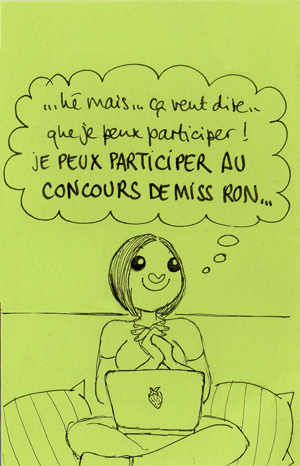 ...hé mais... ça veut dire..
que je peux participer !
JE PEUX PARTICIPER AU
CONCOURS DE MISS RON...